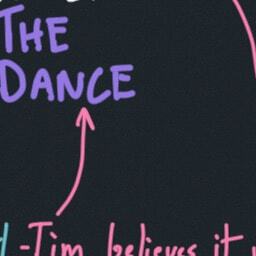 THE
DANCE
-Jim believes it